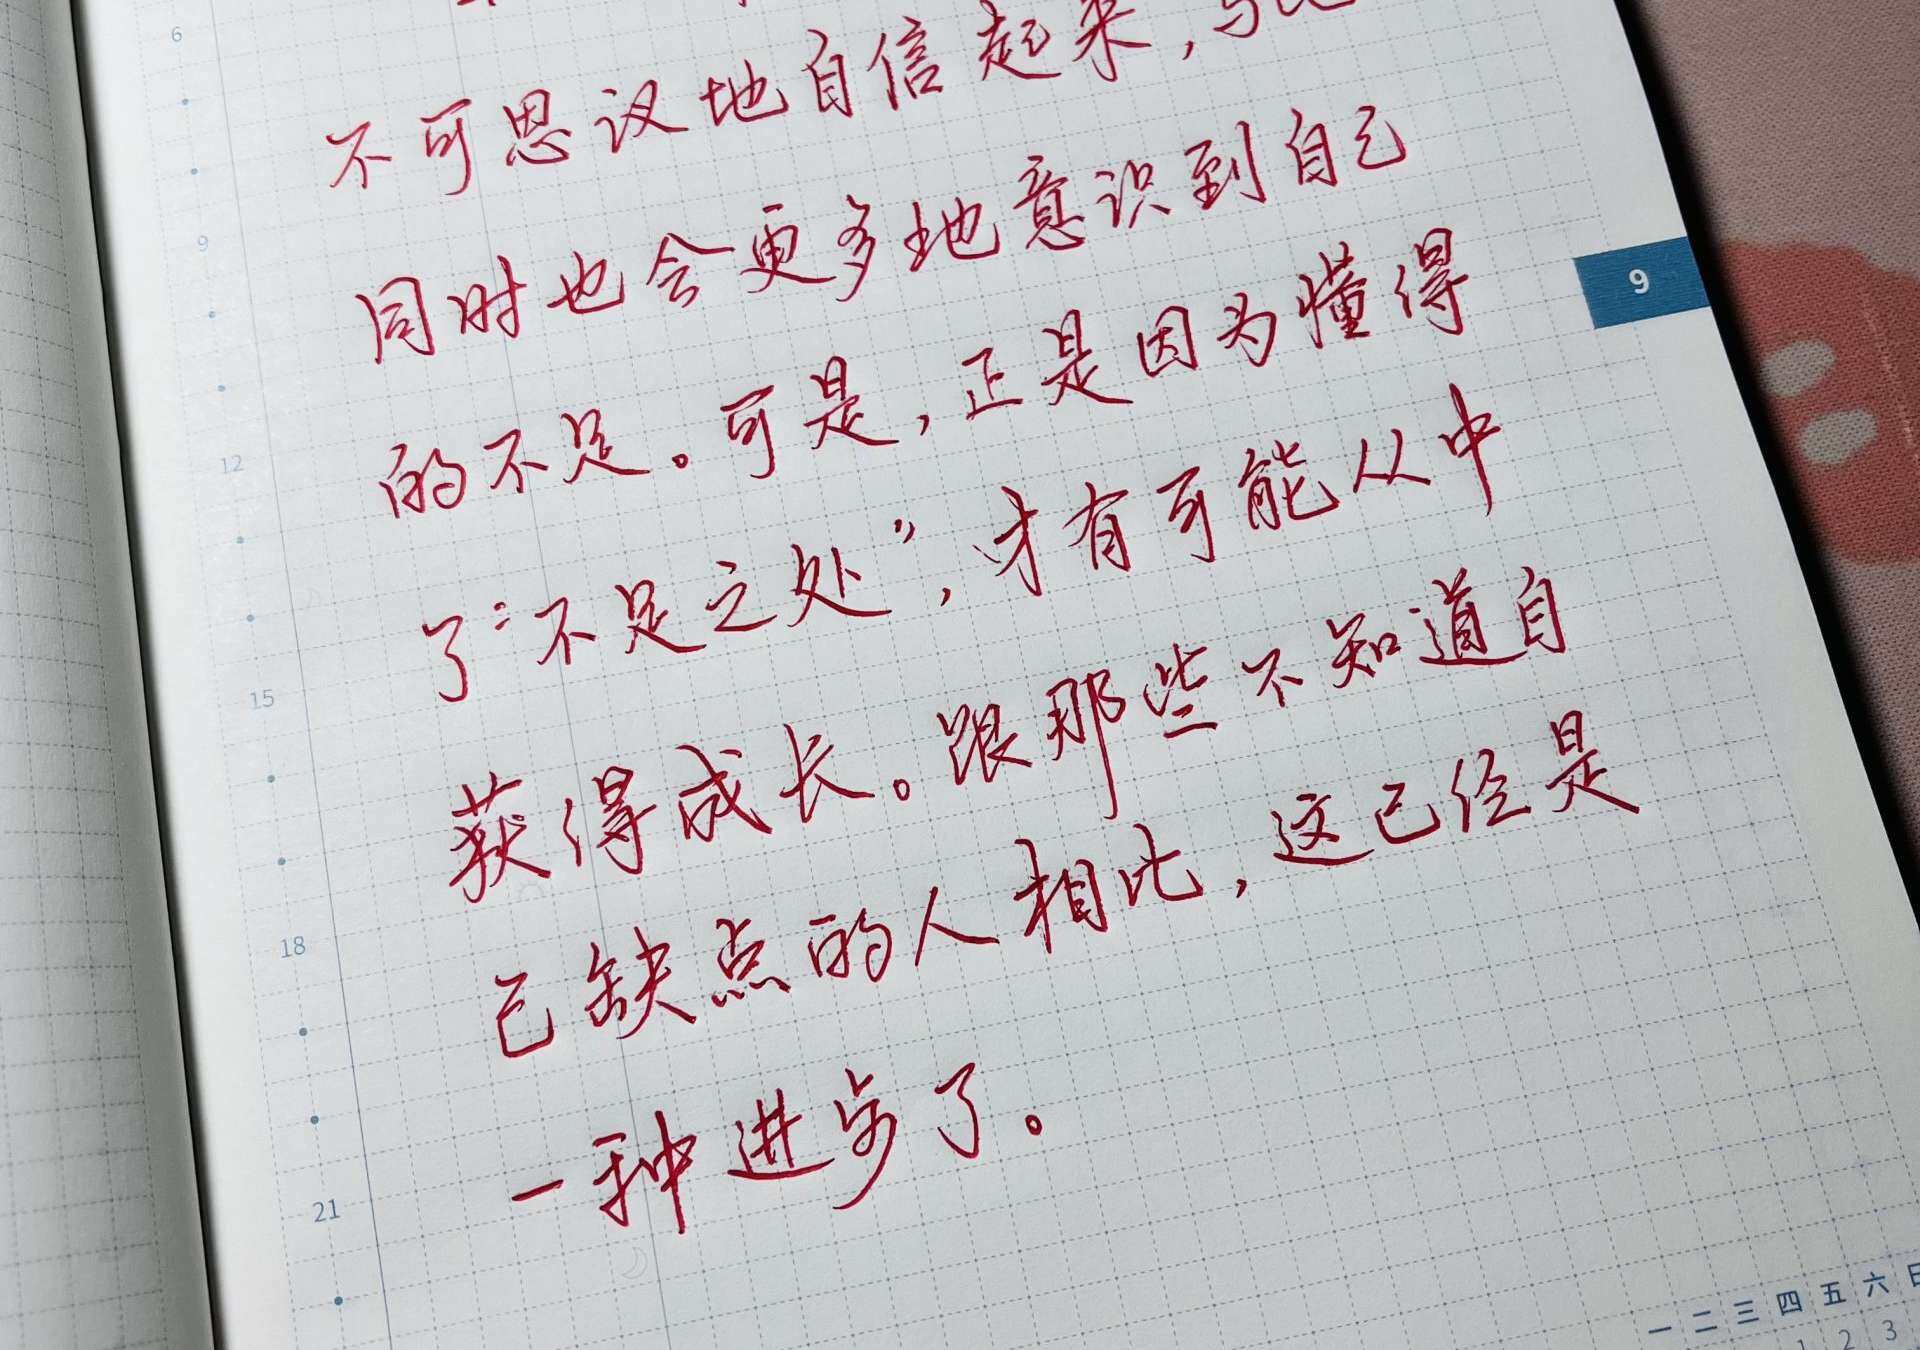 6
不可思议地自信起来，与此
9
同时也会更多地意识到自己
9
的不足。可是，正是因为懂得
12
了“不足之处”，才有可能从中
15
获得成长。跟那些不知道自
己缺点的人相比，这已经是
18
一种进步了。
21
一 二 三 四 五 六 日
1 2 3